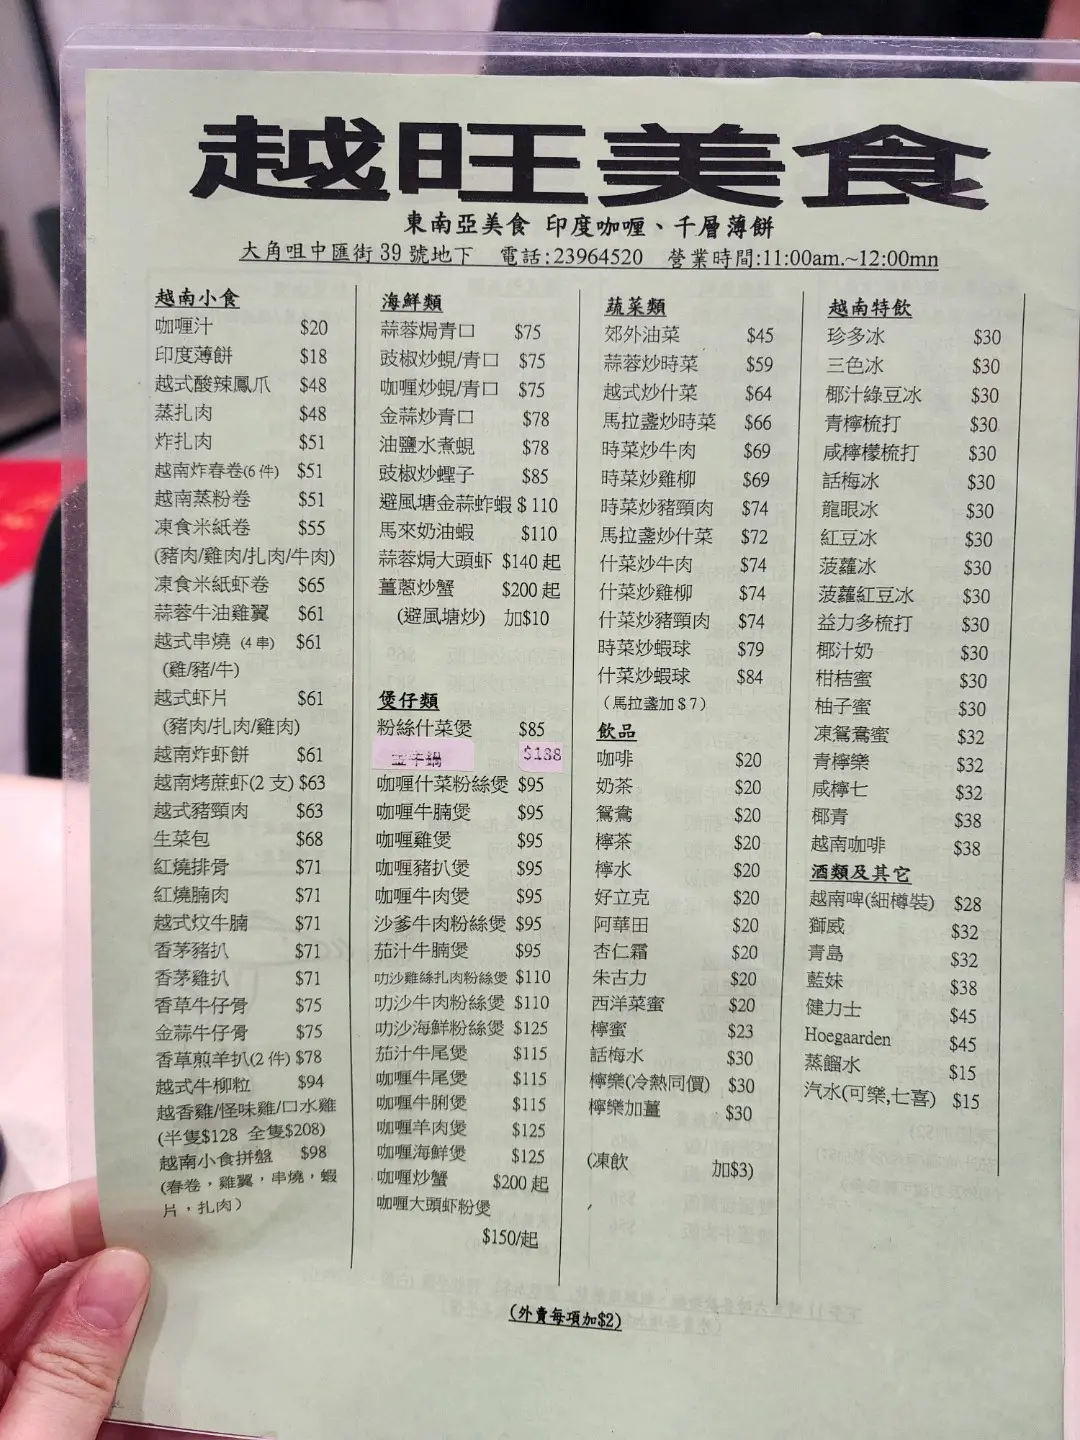 越旺美食
東南亞美食 印度咖喱、千層薄餅
大角咀中匯街 39 號地下 電話:23964520 營業時間:11:00am.~12:00mn
越南小食
咖喱汁 $20
印度薄餅 $18
越式酸辣鳳爪 $48
蒸扎肉 $48
炸扎肉 $51
越南炸春卷(6 件) $51
越南蒸粉卷 $51
凍食米紙卷 $55
(豬肉/雞肉/扎肉/牛肉)
凍食米紙虾卷 $65
蒜蓉牛油雞翼 $61
越式串燒 (4 串) $61
(雞/豬/牛)
越式虾片 $61
(豬肉/扎肉/雞肉)
越南炸虾餅 $61
越南烤蔗虾(2 支) $63
越式豬頸肉 $63
生菜包 $68
紅燒排骨 $71
紅燒腩肉 $71
越式炆牛腩 $71
香茅豬扒 $71
香茅雞扒 $71
香草牛仔骨 $75
金蒜牛仔骨 $75
香草煎羊扒(2 件) $78
越式牛柳粒 $94
越香雞/怪味雞/口水雞
(半隻$128 全隻$208)
越南小食拼盤 $98
(春卷，雞翼，串燒，蝦
片，扎肉)
海鮮類
蒜蓉焗青口 $75
豉椒炒蜆/青口 $75
咖喱炒蜆/青口 $75
金蒜炒青口 $78
油鹽水煮蜆 $78
豉椒炒蟶子 $85
避風塘金蒜蚱蝦 $ 110
馬來奶油蝦 $110
蒜蓉焗大頭虾 $140 起
薑蔥炒蟹 $200 起
(避風塘炒) 加$10
煲仔類
粉絲什菜煲 $85
$188
咖喱什菜粉絲煲 $95
咖喱牛腩煲 $95
咖喱雞煲 $95
咖喱豬扒煲 $95
咖喱牛肉煲 $95
沙爹牛肉粉絲煲 $95
茄汁牛腩煲 $95
叻沙雞絲扎肉粉絲煲 $110
叻沙牛肉粉絲煲 $110
叻沙海鮮粉絲煲 $125
茄汁牛尾煲 $115
咖喱牛尾煲 $115
咖喱牛脷煲 $115
咖喱羊肉煲 $125
咖喱海鮮煲 $125
咖喱炒蟹 $200 起
咖喱大頭虾粉煲
$150/起
蔬菜類
郊外油菜 $45
蒜蓉炒時菜 $59
越式炒什菜 $64
馬拉盞炒時菜 $66
時菜炒牛肉 $69
時菜炒雞柳 $69
時菜炒豬頸肉 $74
馬拉盞炒什菜 $72
什菜炒牛肉 $74
什菜炒雞柳 $74
什菜炒豬頸肉 $74
時菜炒蝦球 $79
什菜炒蝦球 $84
(馬拉盞加 $ 7)
飲品
咖啡 $20
奶茶 $20
鴛鴦 $20
檸茶 $20
檸水 $20
好立克 $20
阿華田 $20
杏仁霜 $20
朱古力 $20
西洋菜蜜 $20
檸蜜 $23
話梅水 $30
檸樂(冷熱同價) $30
檸樂加薑 $30
(凍飲 加$3)
越南特飲
珍多冰 $30
三色冰 $30
椰汁綠豆冰 $30
青檸梳打 $30
咸檸檬梳打 $30
話梅冰 $30
龍眼冰 $30
紅豆冰 $30
菠蘿冰 $30
菠蘿紅豆冰 $30
益力多梳打 $30
椰汁奶 $30
柑桔蜜 $30
柚子蜜 $30
凍鴛鴦蜜 $32
青檸樂 $32
咸檸七 $32
椰青 $38
越南咖啡 $38
酒類及其它
越南啤(細樽裝) $28
獅威 $32
青島 $32
藍妹 $38
健力士 $45
Hoegaarden $45
蒸餾水 $15
汽水(可樂,七喜) $15
(外賣每項加$2)